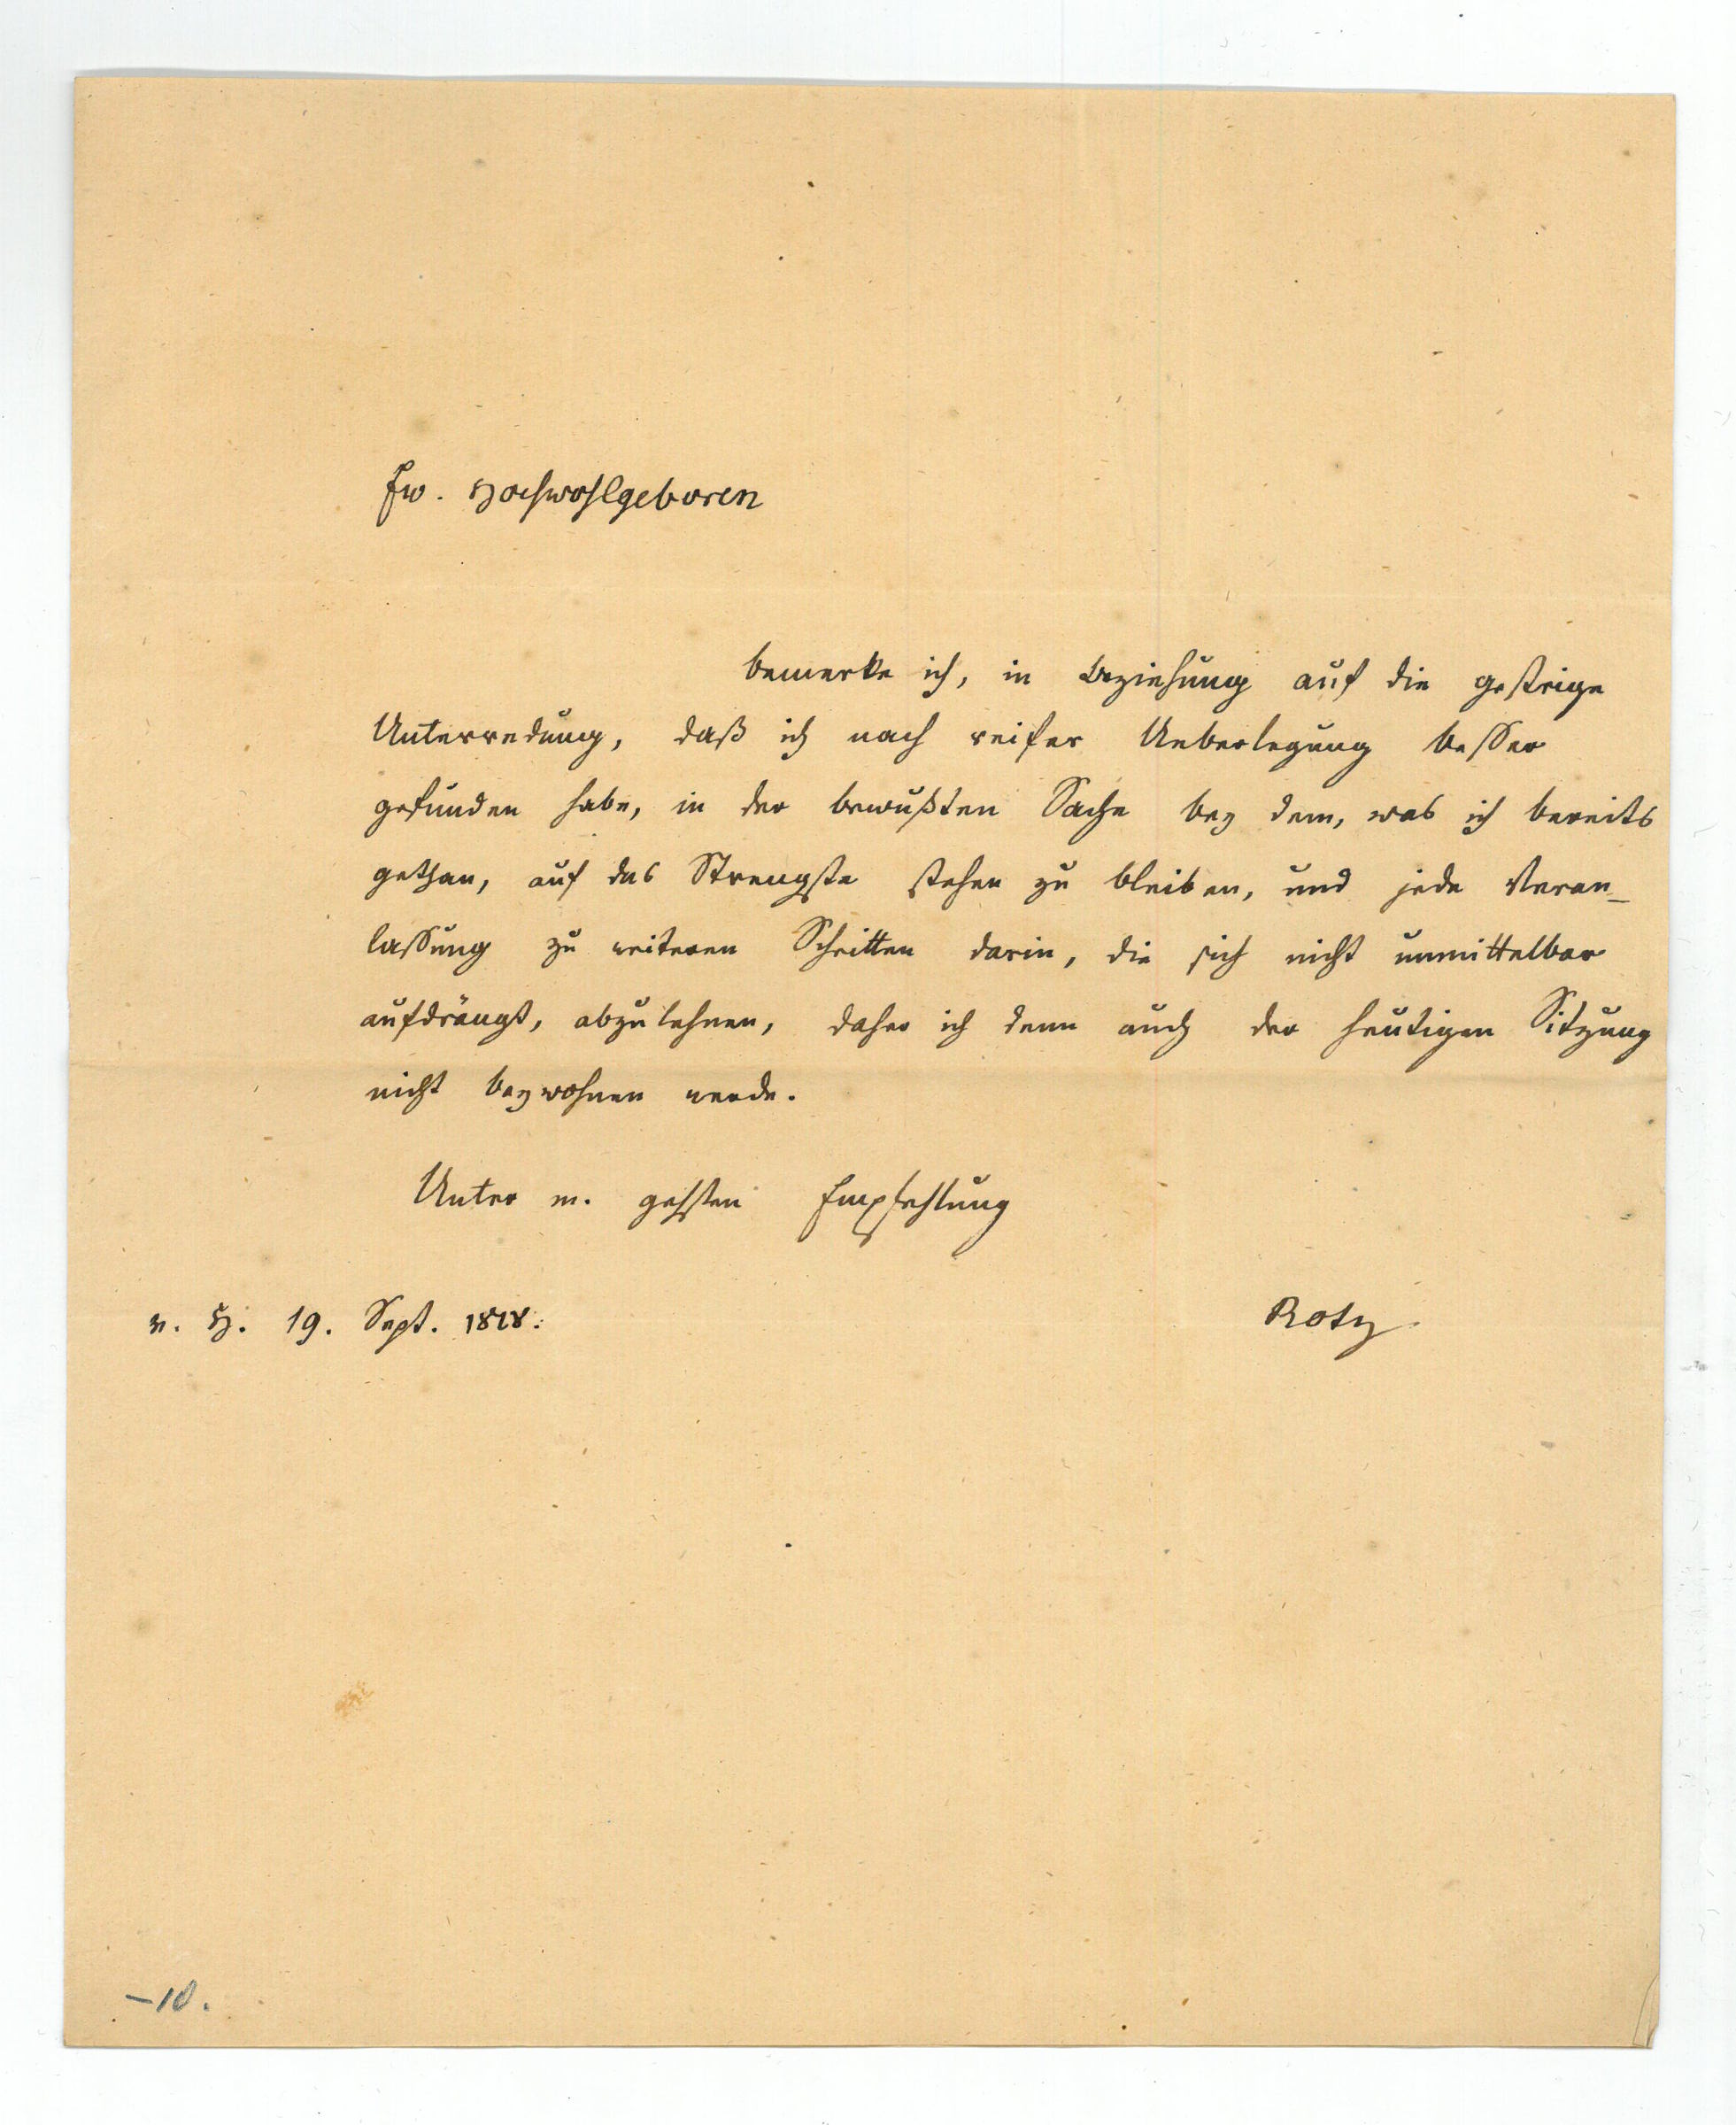 Ew. Hochwohlgeboren
bemerke ich, in Beziehung auf die gestrige
Unterredung, daß ich nach reifer Ueberlegung besser
gefunden habe, in der bewußten Sache bey dem, was ich bereits
gethan, auf das Strengste stehen zu bleiben, und jede Veran_
lassung zu weiteren Schritten darin, die sich nicht unmittelbar
aufdrängt, abzulehnen, daher ich denn auch der heutigen Sitzung
nicht beywohnen werde.
Unter m. gehsten Empfehlung
v. H. 19. Sept. 1828.
–10.